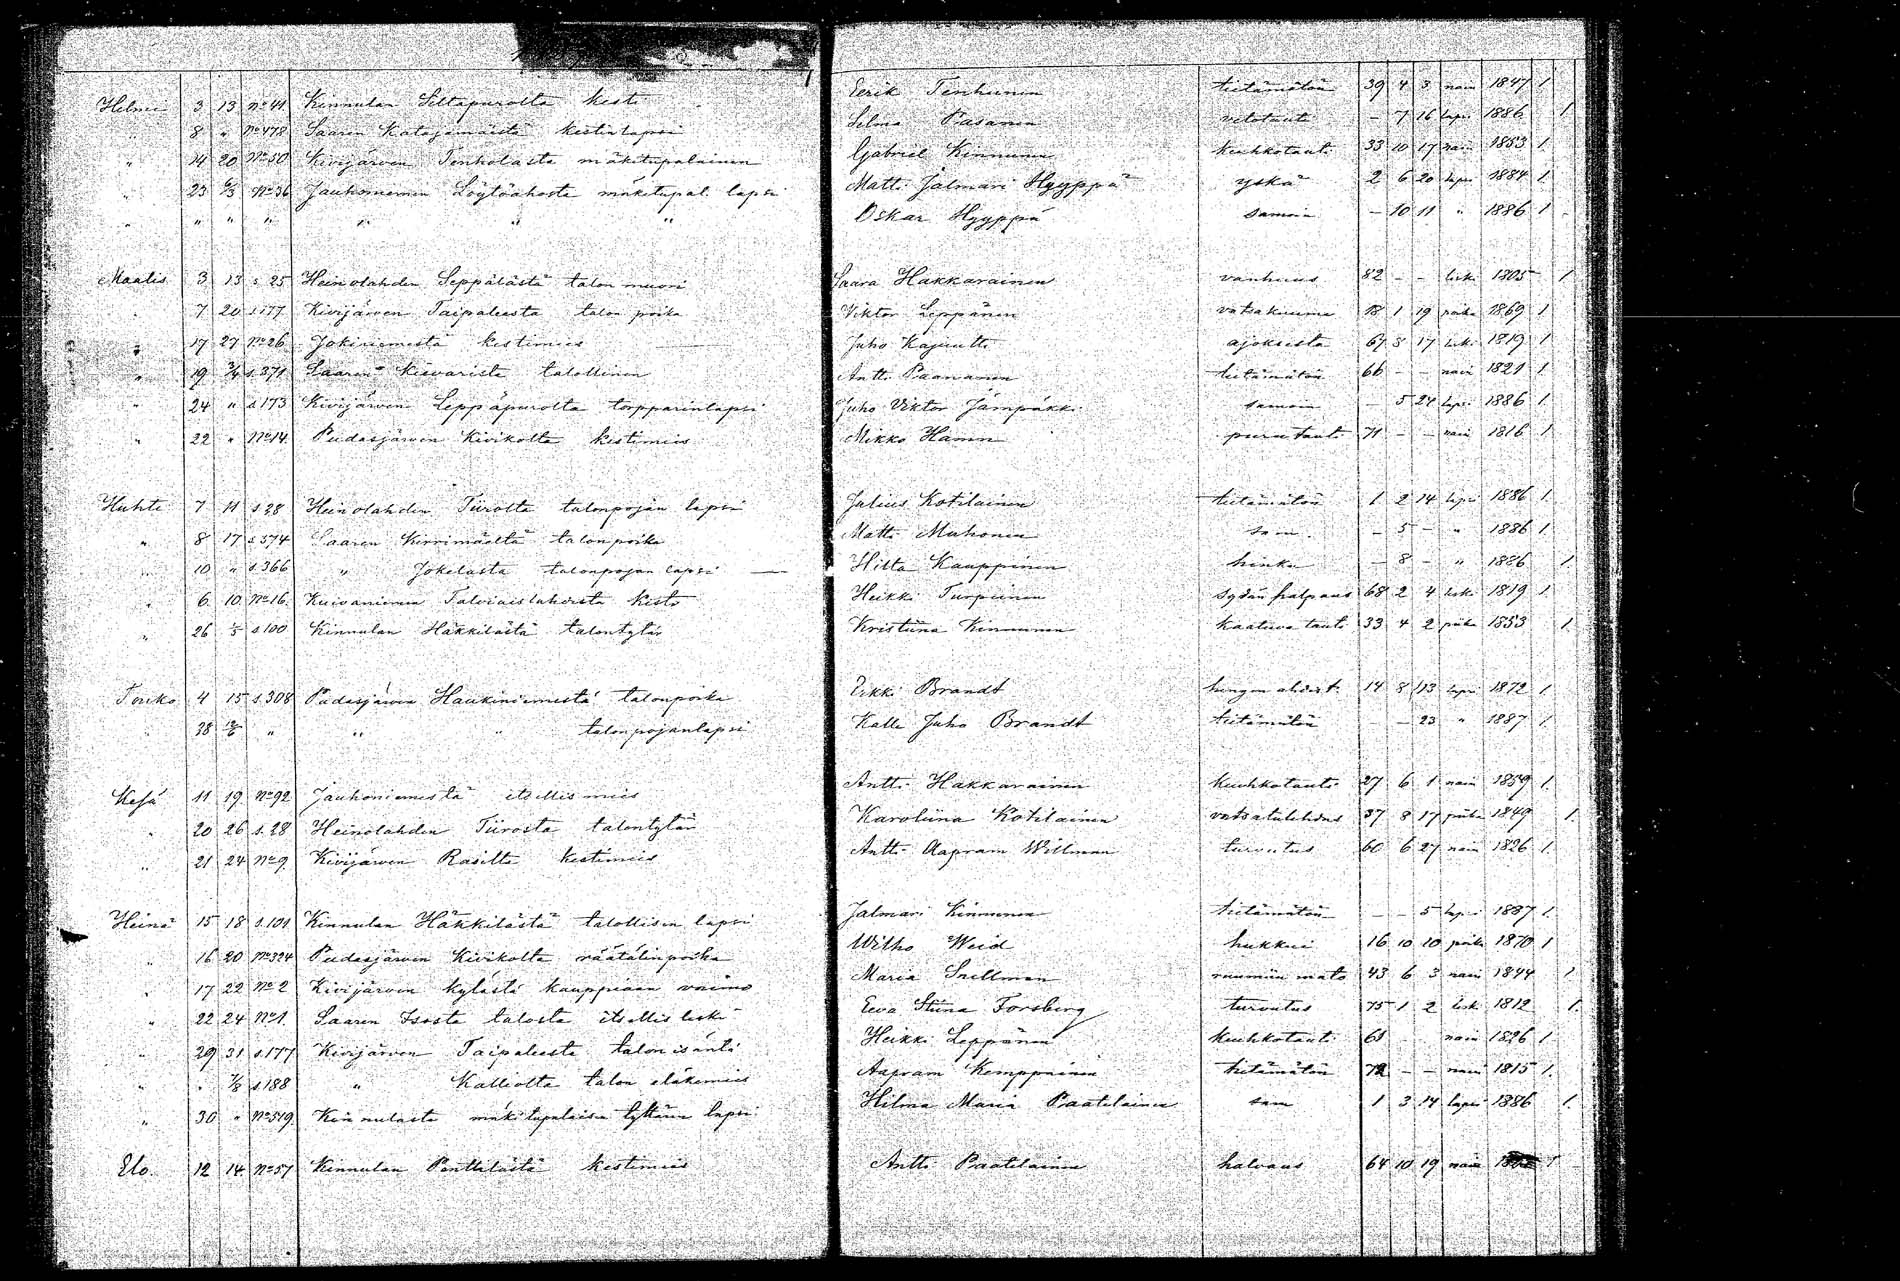 Helmi 3 13 No 41 Kinnulan Siltapurolta kesti Eerik Tenhunen tietämätön 39 4 3 nain 1847 1.
" 8 " No 478 Saaren Katajamäestä kestin lapsi Selma Pasanen vetotauti - 7 16 lapsi 1886 1
" 14 20 No 50 Kivijärven Tenholasta mäkitupalainen Gabriel Kinnunen keuhkotauti 33 10 17 nain 1853 1.
" 23 6/3 No 36 Jauhoniemen Löytöahosta mäkitupal. lapsi Matti Jalmari Hyyppä yskä 2 6 20 lapsi 1884 1.
" " " " " " " Oskar Hyyppä samoin - 10 11 " 1886 1.
Maalis 3 13 s. 25 Heinolahden Seppälästä talon muori Saara Hakkarainen vanhuus 82 - - leski 1805 1
" 7 20 s. 177 Kivijärven Taipaleesta talon poika Viktor Leppänen vatsakuume 18 1 19 poika 1869 1
" 17 27 No 26 Jokiniemestä kestimies Juho Kajuutti ajoksesta 67 8 17 leski 1819 1
" 19 3/4 s. 371 Saaren Kievarista talollinen Antti Paananen tietämätön 66 - - nain 1821 1.
" 24 " s. 173 Kivijärven Leppäpurolta torpparinlapsi Juho Viktor Jämpäkki samoin - 5 24 lapsi 1886 1.
" 22 " No 14 Pudasjärven Kivikolta kestimies Mikko Hamn purutauti 71 - - nain 1816 1.
Huhti 7 11 s. 28 Heinolahden Tiirolta talonpojan lapsi Julius Kotilainen tietämätön 1 2 14 lapsi 1886 1.
" 8 17 s. 574 Saaren Kirrimäeltä talonpoika Matti Muhonen sam. - 5 - " 1886 1.
" 10 " s. 366 " Jokelasta talonpojan lapsi Hilta Kauppinen hinku - 8 - " 1886 1.
" 6 10 No 16 Kuivaniemen Talviaislahdesta kesti Heikki Turpeinen sydän halpaus 68 2 4 leski 1819 1.
" 26 1/5 s. 100 Kinnulan Häkkilästä talontytär Kristiina Kinnunen kaatuva tauti 33 4 2 piika 1853 1.
Touko 4 15 s. 308 Pudasjärven Haukiniemestä talonpoika Erkki Brandt hengen ahdist. 14 8 13 lapsi 1872 1.
28 12/6 " " " talonpojanlapsi Kalle Juho Brandt tietämätön - - 23 " 1887 1.
Kesä 11 19 No 92 Jauhoniemestä itsellismies Antti Hakkarainen keuhkotauti 27 6 1 nain 1859 1.
" 20 26 s. 28 Heinolahden Tiirosta talontytär Karoliina Kotilainen vatsatulehdus 37 8 17 piika 1849 1.
" 21 24 No 9. Kivijärven Rasilta kestimies Antti Aapram Willman turvotus 60 6 27 nain 1826 1.
Heinä 15 18 s. 101 Kinnulan Häkkilästä talollisen lapsi Jalmari Kinnunen tietämätön - - 5 lapsi 1887 1.
" 16 20 No 324 Pudasjärven Kivikolta räätälinpoika Wilho Weid hukkui 16 10 10 poika 1870 1
" 17 22 No 2 Kivijärven kylästä kauppiaan vaimo Maria Snellman ruumiin mato 43 6 3 nain 1844 1
" 22 24 No 1. Saaren Isosta talosta itsellis leski Eeva Stiina Forsberg turvotus 75 1 2 lesk 1812 1.
" 29 31 s. 177 Kivijärven Taipaleesta talonisäntä Heikki Leppänen keuhkotauti 61 nain 1826 1
" " 7/8 s. 188 " Kalliolta talon eläkemies Aapram Kemppainen tietämätön 72 - - nain 1815 1.
" 30 " No 519. Kinnulasta mäkitupalaisen tyttären lapsi Hilma Maria Paatelainen sam 1 3 14 lapsi 1886 1.
Elo. 12 14 No 57 Kinnulan Penttilästä kestimies Antti Paatelainen halvaus 64 10 19 nain 1